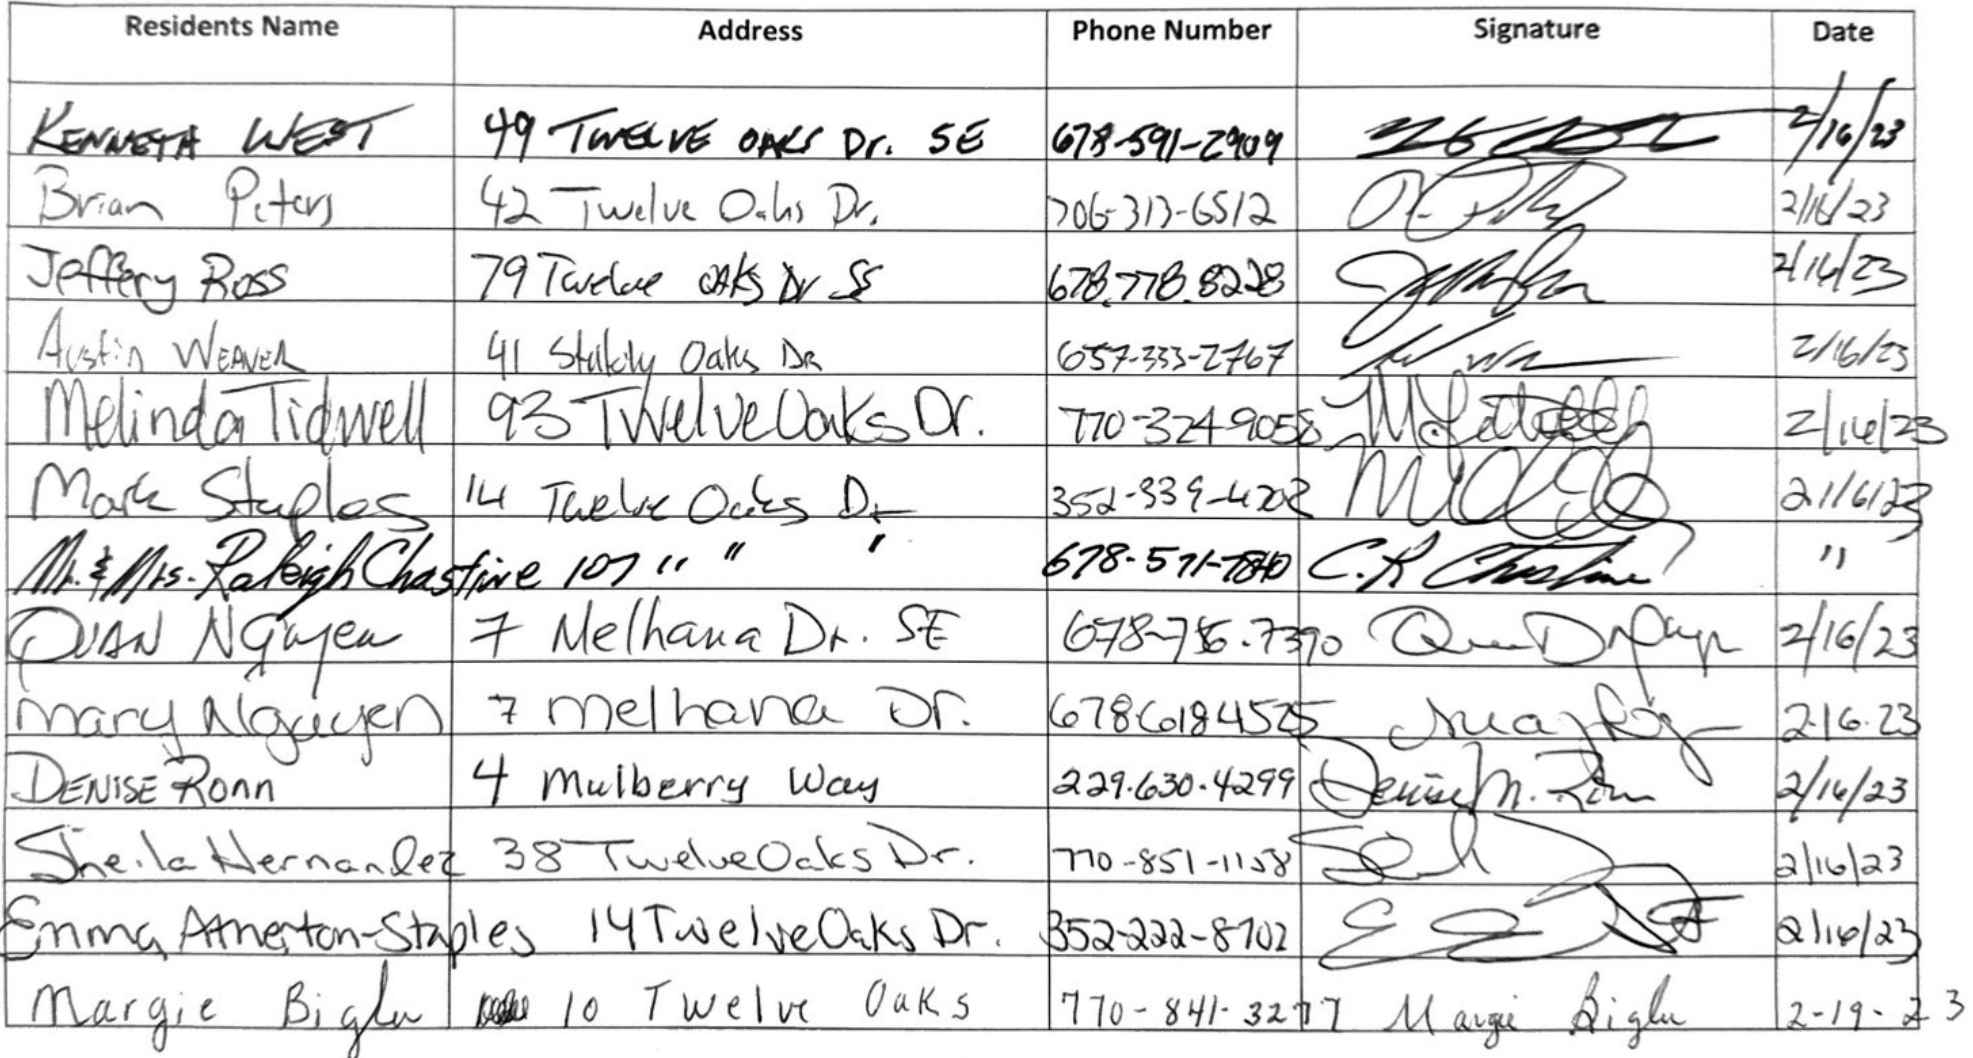 Residents Name Address Phone Number Signature Date
KENNETH WEST 49 TWELVE OAKS Dr. SE 678-591-2909 2/16/23
Brian Peters 42 Twelve Oaks Dr. 706-313-6512 2/16/23
Jeffery Ross 79 Twelve OAKS Dr SE 678.778.8228 2/16/23
Austin WEAVER 41 Stately Oaks DR 657-333-2767 2/16/23
Melinda Tidwell 93 Twelve Oaks Dr. 770-324-9058 2/16/23
Mark Staples 14 Twelve Oaks Dr 352-339-4702 2/16/23
Mr. & Mrs. Raleigh Chastine 107 " " " 678-571-7840 C.R Chastine "
QUAN Nguyen 7 Melhana Dr. SE 2/16/23
Mary Nguyen 7 melhana Dr. 678 618 4525 2.16.23
DENISE RONN 4 Mulberry Way 229.630.4299 Denise M. Ronn 2/16/23
Sheila Hernandez 38 Twelve Oaks Dr. 770-851-1158 2/16/23
Emma Atherton-Staples 14 Twelve Oaks Dr. 352-222-8702 2/16/23
Margie Biglu 10 Twelve Oaks 770-841-3277 Margie Biglu 2-19-23